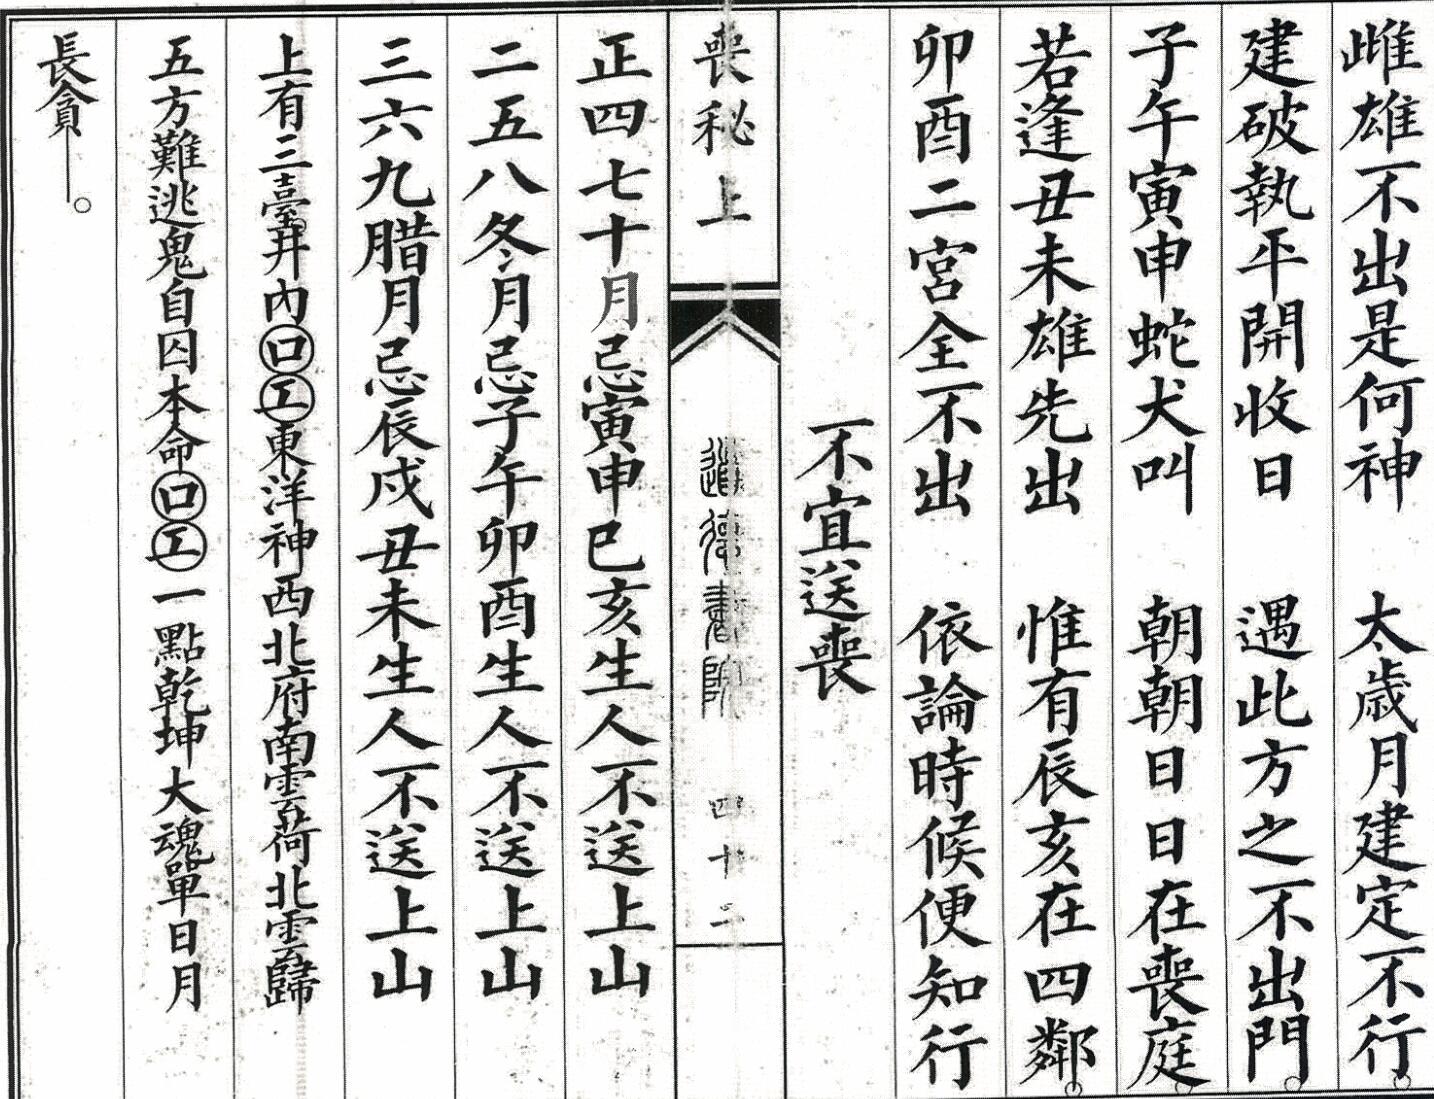 雌雄不出是何神　太歲月建定不行。
建破執平開收日　遇此方之不出門。
子午寅申蛇犬叫　朝朝日日在喪庭。
若逢丑未雄先出　惟有辰亥在四鄰。
卯酉二宮全不出　依論時候便知行
不宜送喪
喪秘上　進德書院　四十二
正四七十月忌寅申巳亥生人不送上山
二五八冬月忌子午卯酉生人不送上山
三六九腊月忌辰戌丑未生人不送上山
上有三臺井內口工東洋神西北府南雲荷北雲歸
五方難逃鬼自囚本命口工一點乾坤大魂單日月
長貪。